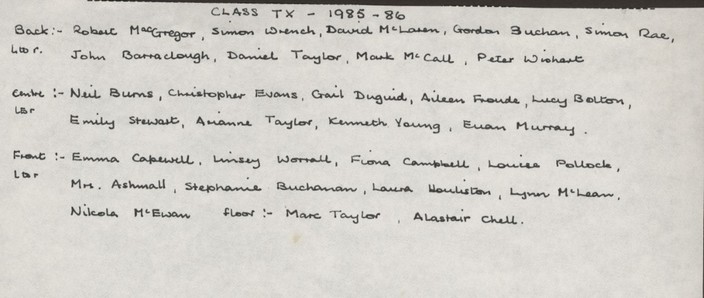 CLASS TX - 1985-86
Back:- Robert MacGregor, Simon Wrench, David McLaren, Gordon Buchan, Simon Rae,
L to r. John Barraclough, Daniel Taylor, Mark McCall, Peter Wishart
Centre:- Neil Burns, Christopher Evans, Gail Duguid, Aileen Froude, Lucy Bolton,
L to r Emily Stewart, Arianne Taylor, Kenneth Young, Euan Murray.
Front:- Emma Capewell, Linsey Worrall, Fiona Campbell, Louise Pollock,
L to r Mrs. Ashmall, Stephanie Buchanan, Laura Houliston, Lynn McLean,
Nikola McEwan floor:- Marc Taylor, Alastair Chell.